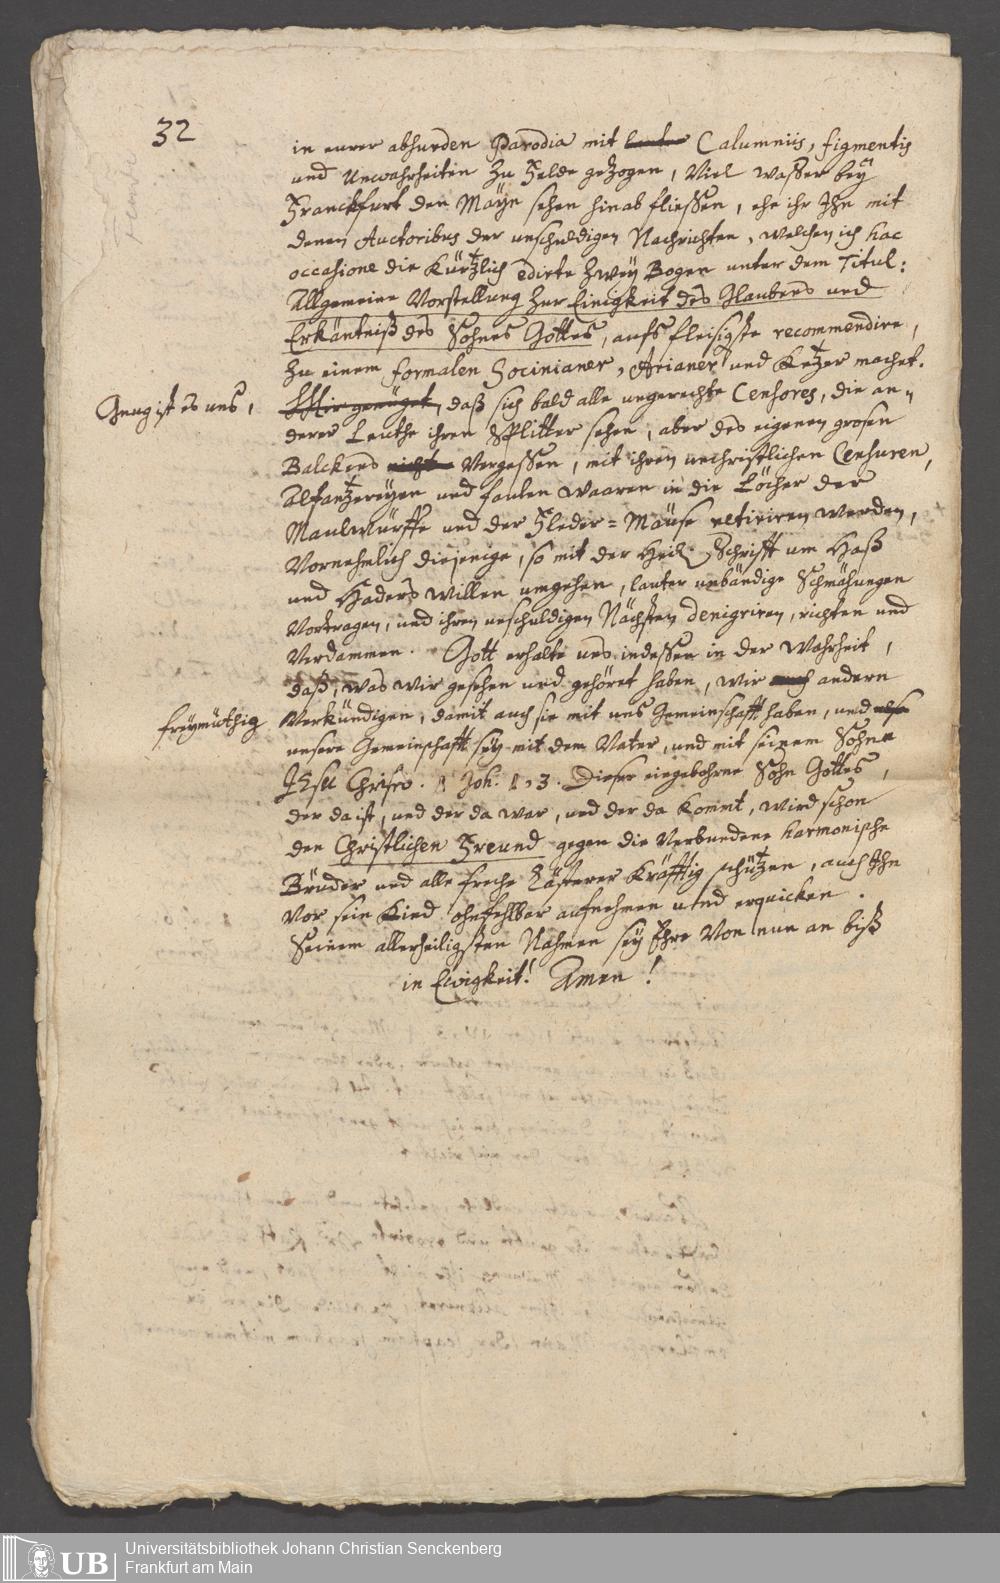 32
in eurer absurden Parodia mit lauter Calumniis, figmentis
und Unwahrheiten zu Felde gezogen, Viel wasser bey
Franckfurt den Mäyn sehen hinab fliessen, ehe ihr Ihn mit
denen Auctoribus der unschuldigen Nachrichten, welchen ich hac
occasione die kürtzlich edirte zwey Bogen unter dem Titul:
Allgemeine Vorstellung zur Einigkeit des Glaubens und
Erkäntniß des Sohnes Gottes, aufs fleisigste recommendire,
zu einem formalen Socinianer, Arianer und Ketzer machet.
Gnug ist es uns,
Mir genüget, daß sich bald alle ungerechte Censores, die an-
derer Leuthe ihren Splitter sehen, aber des eigenen grosen
Balckens nicht Vergessen, mit ihren unchristlichen Censuren,
Alfantzereyen und faulen waaren in die Löcher der
Maulwürffe und der Fleder-Mäuse retiriren werden,
Vornehmlich diejenige, so mit der Heil. Schrifft um Haß
und Haders willen umgehen, lauter unbändige Schmähungen
Vortragen, und ihren unschuldigen Nächsten denigriren, richten und
Verdammen. Gott erhalte uns indessen in der Wahrheit,
daß, was wir gesehen und gehöret haben, wir auch andern
freymüthig
Verkündigen, damit auch sie mit uns Gemeinschafft haben, und
unsere Gemeinschafft sey mit dem Vater, und mit seinem Sohne
JEsu Christo. 1 Joh. 1, 3. Dieser eingebohrne Sohn Gottes,
der da ist, und der da war, und der da kommt, wird schon
den Christlichen Freund gegen die Verbundene harmonische
Brüder und alle freche Lästerer kräfftig schützen, auch Ihn
Vor sein Kind ohnfehlbar aufnehmen und erquicken.
Seinem allerheiligsten Nahmen sey Ehre Von nun an biß
in Ewigkeit! Amen!
UB
Universitätsbibliothek Johann Christian Senckenberg
Frankfurt am Main